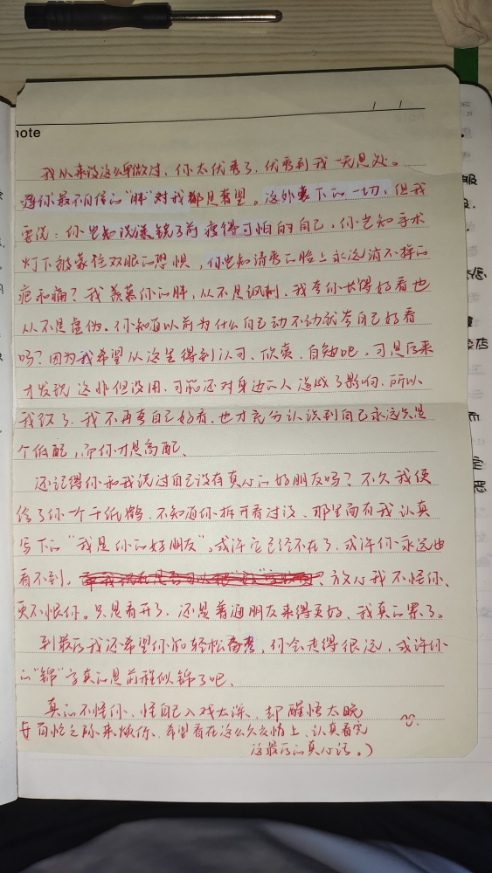 note
/ /
我从来没这么卑微过，你太优秀了，优秀到我一无是处。
连你最不自信的"胖"对我都是奢望。海外天下的一切，但我
要说：你岂知洗漱镜子前瘦得可怕的自己，你岂知手术
灯下被蒙住双眼的恐惧，你岂知清秀的脸上永远消不掉的
疤和痛？我羡慕你的胖，从不是讽刺，我夸你长得好看也
从不是虚伪。你知道以前为什么自己动不动就夸自己好看
吗？因为我希望从这里得到认可、欣赏、自知吧，可是后来
才发现这非但没用，可能还对身边的人造成了影响。所以
我改了，我不再夸自己好看，也才充分认识到自己永远只是
个低配，而你才是高配。
还记得你和我说过自己没有真心的好朋友吗？不久我便
给了你一个千纸鹤，不知道你拆开看过没，那里面有我认真
写下的"我是你的好朋友"。或许它已经不在了，或许你永远也
看不到。放心我不怪你、
更不恨你。只是看开了，还是普通朋友来得更好，我真的累了。
到最后我还希望你能轻松备考，你会走得很远，或许你
的"锦"字真的是前程似锦了吧。
真的不怪你，怪自己入戏太深，却醒悟太晚
百忙之际来烦你，希望看在这么久友情上，认真看完
这最后的真心话。）